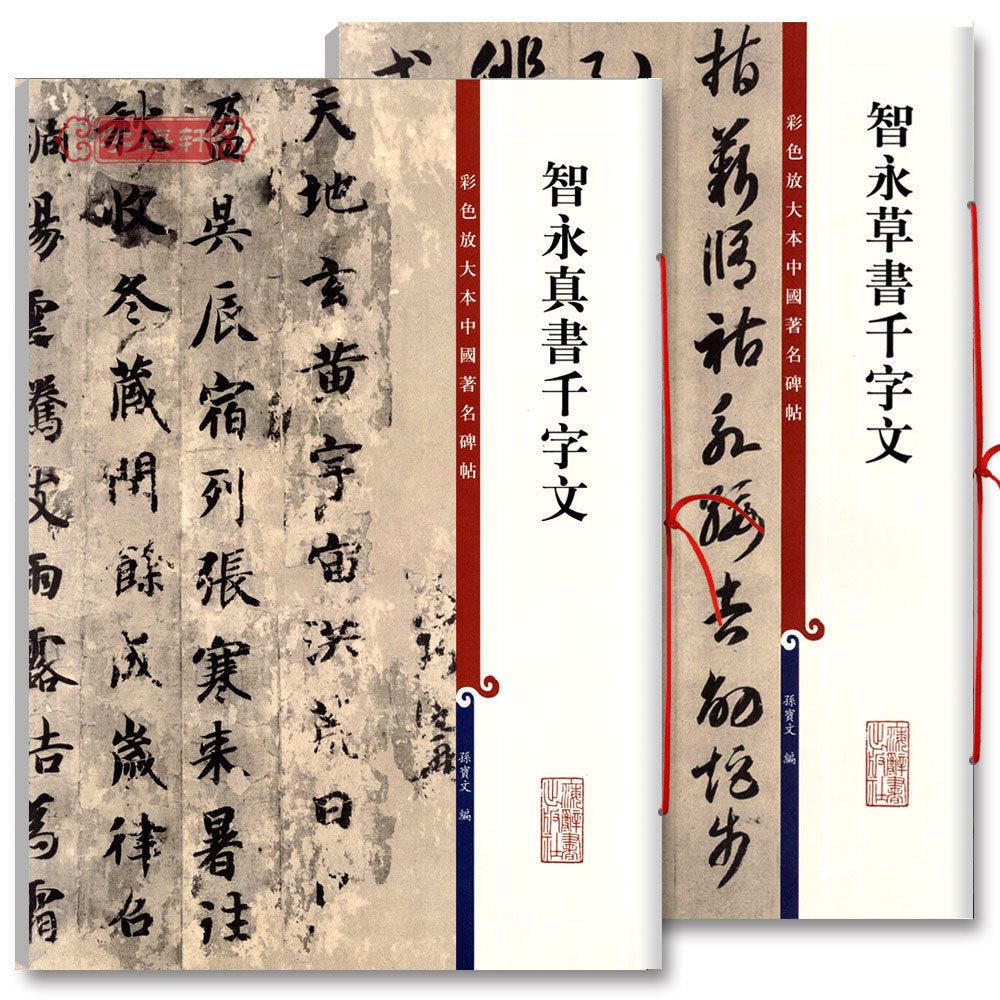 智永真書千字文
彩色放大本中國著名碑帖
孫寶文 編
天地玄黄宇宙洪荒日
盈昃辰宿列張寒来暑往
秋收冬藏閏餘成歲律召
陽雲騰致雨露結為霜
智永草書千字文
彩色放大本中國著名碑帖
孫寶文 編
指薪脩祜永綏吉劭矩步